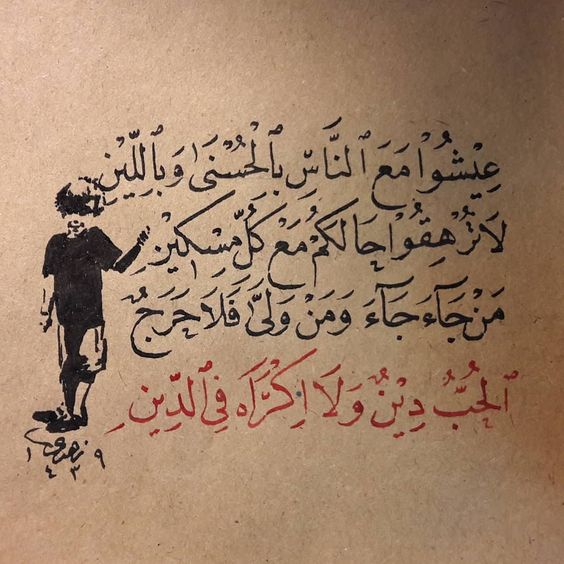 عِيْشُوْا مَعَ ٱلنَّاسِ بِٱلْحُسْنَىٰ وَبِٱللِّيْنِ
لَا تُرْهِقُوْا حَالَكُمْ مَعْ كُلِّ مِسْكِيْنِ
مَنْ جَآءَ جَآءَ وَمَنْ وَلَّىٰ فَلَا حَرَجٌ
ٱلْحُبُّ دِيْنٌ وَلَا إِكْرَاهَ فِي ٱلدِّينِ
١٤٣٩